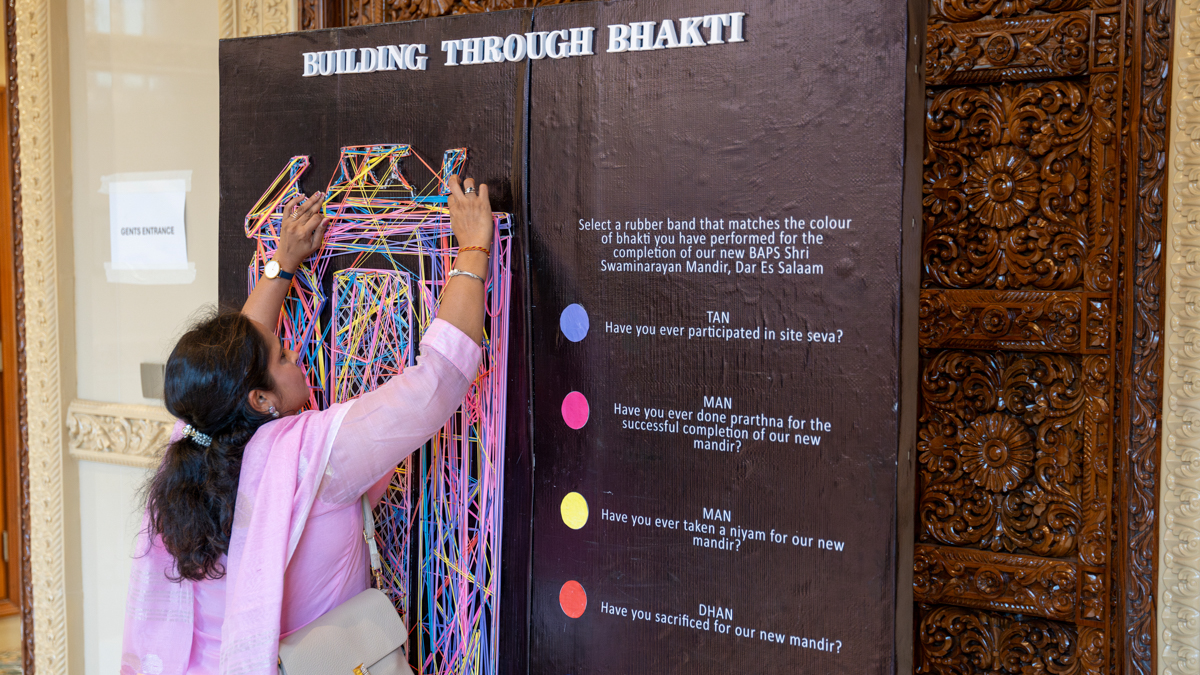 BUILDING THROUGH BHAKTI
GENTS ENTRANCE
Select a rubber band that matches the colour
of bhakti you have performed for the
completion of our new BAPS Shri
Swaminarayan Mandir, Dar Es Salaam
TAN
Have you ever participated in site seva?
MAN
Have you ever done prarthna for the
successful completion of our new
mandir?
MAN
Have you ever taken a niyam for our new
mandir?
DHAN
Have you sacrificed for our new mandir?